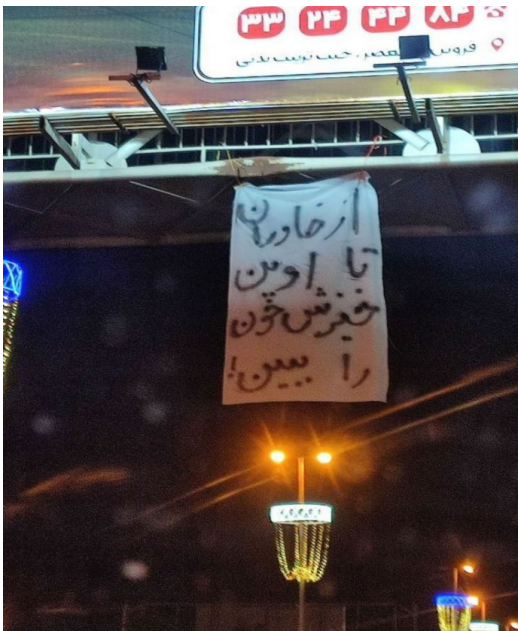 ۳۳ ۲۴ ۴۴ ۸۴
جنب تربیت بدنی
از خاوران
تا اوین
خیزش خون
را ببین!